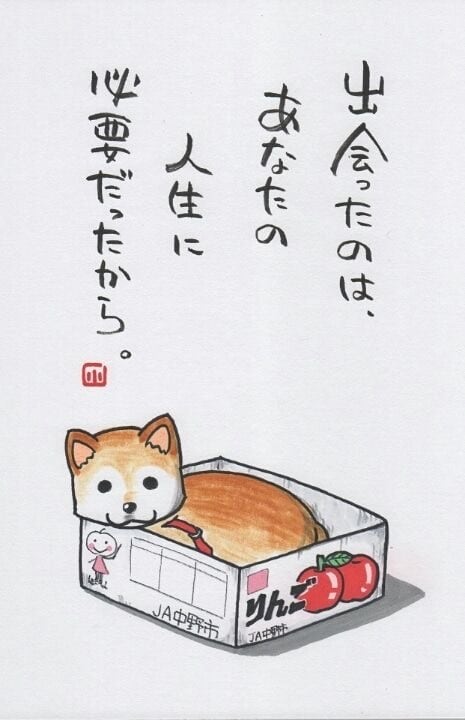 出会ったのは、
あなたの
人生に
必要だったから。
JA中野市
りんご
JA中野市